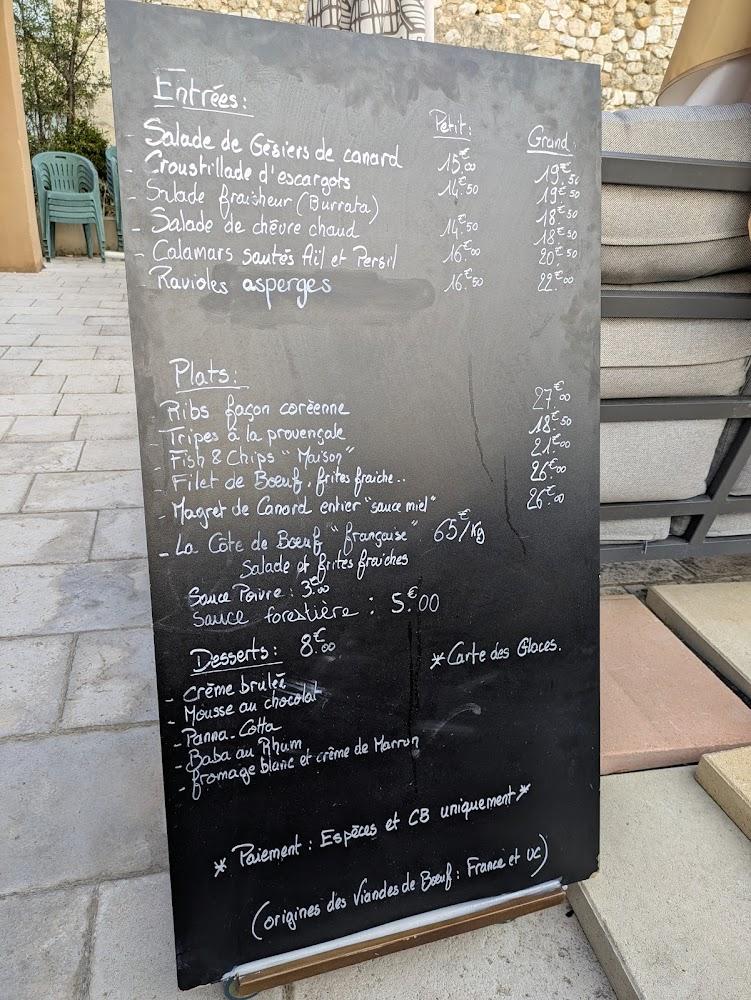 Entrées: Petit: Grand:
- Salade de Gésiers de canard 15€00 19€50
- Croustillade d'escargots 14€50 19€50
- Salade fraîcheur (Burrata) 18€50
- Salade de chèvre chaud 14€50 18€50
- Calamars sautés Ail et Persil 16€00 20€50
- Ravioles asperges 16€50 22€00
Plats:
- Ribs façon coréenne 27€00
- Tripes à la provençale 18€50
- Fish & Chips "Maison" 21€00
- Filet de Boeuf, frites fraîche.. 26€00
- Magret de Canard entier "sauce miel" 26€00
- La Côte de Boeuf "française" 65€/Kg
Salade et frites fraîches
Sauce Poivre: 3€00
Sauce forestière: 5€00
Desserts: 8€00
*Carte des Glaces.
- Crème brulée
- Mousse au chocolat
- Panna-Cotta
- Baba au Rhum
- fromage blanc et crème de Marron
* Paiement: Espèces et CB uniquement *
(origines des Viandes de Boeuf: France et UC)